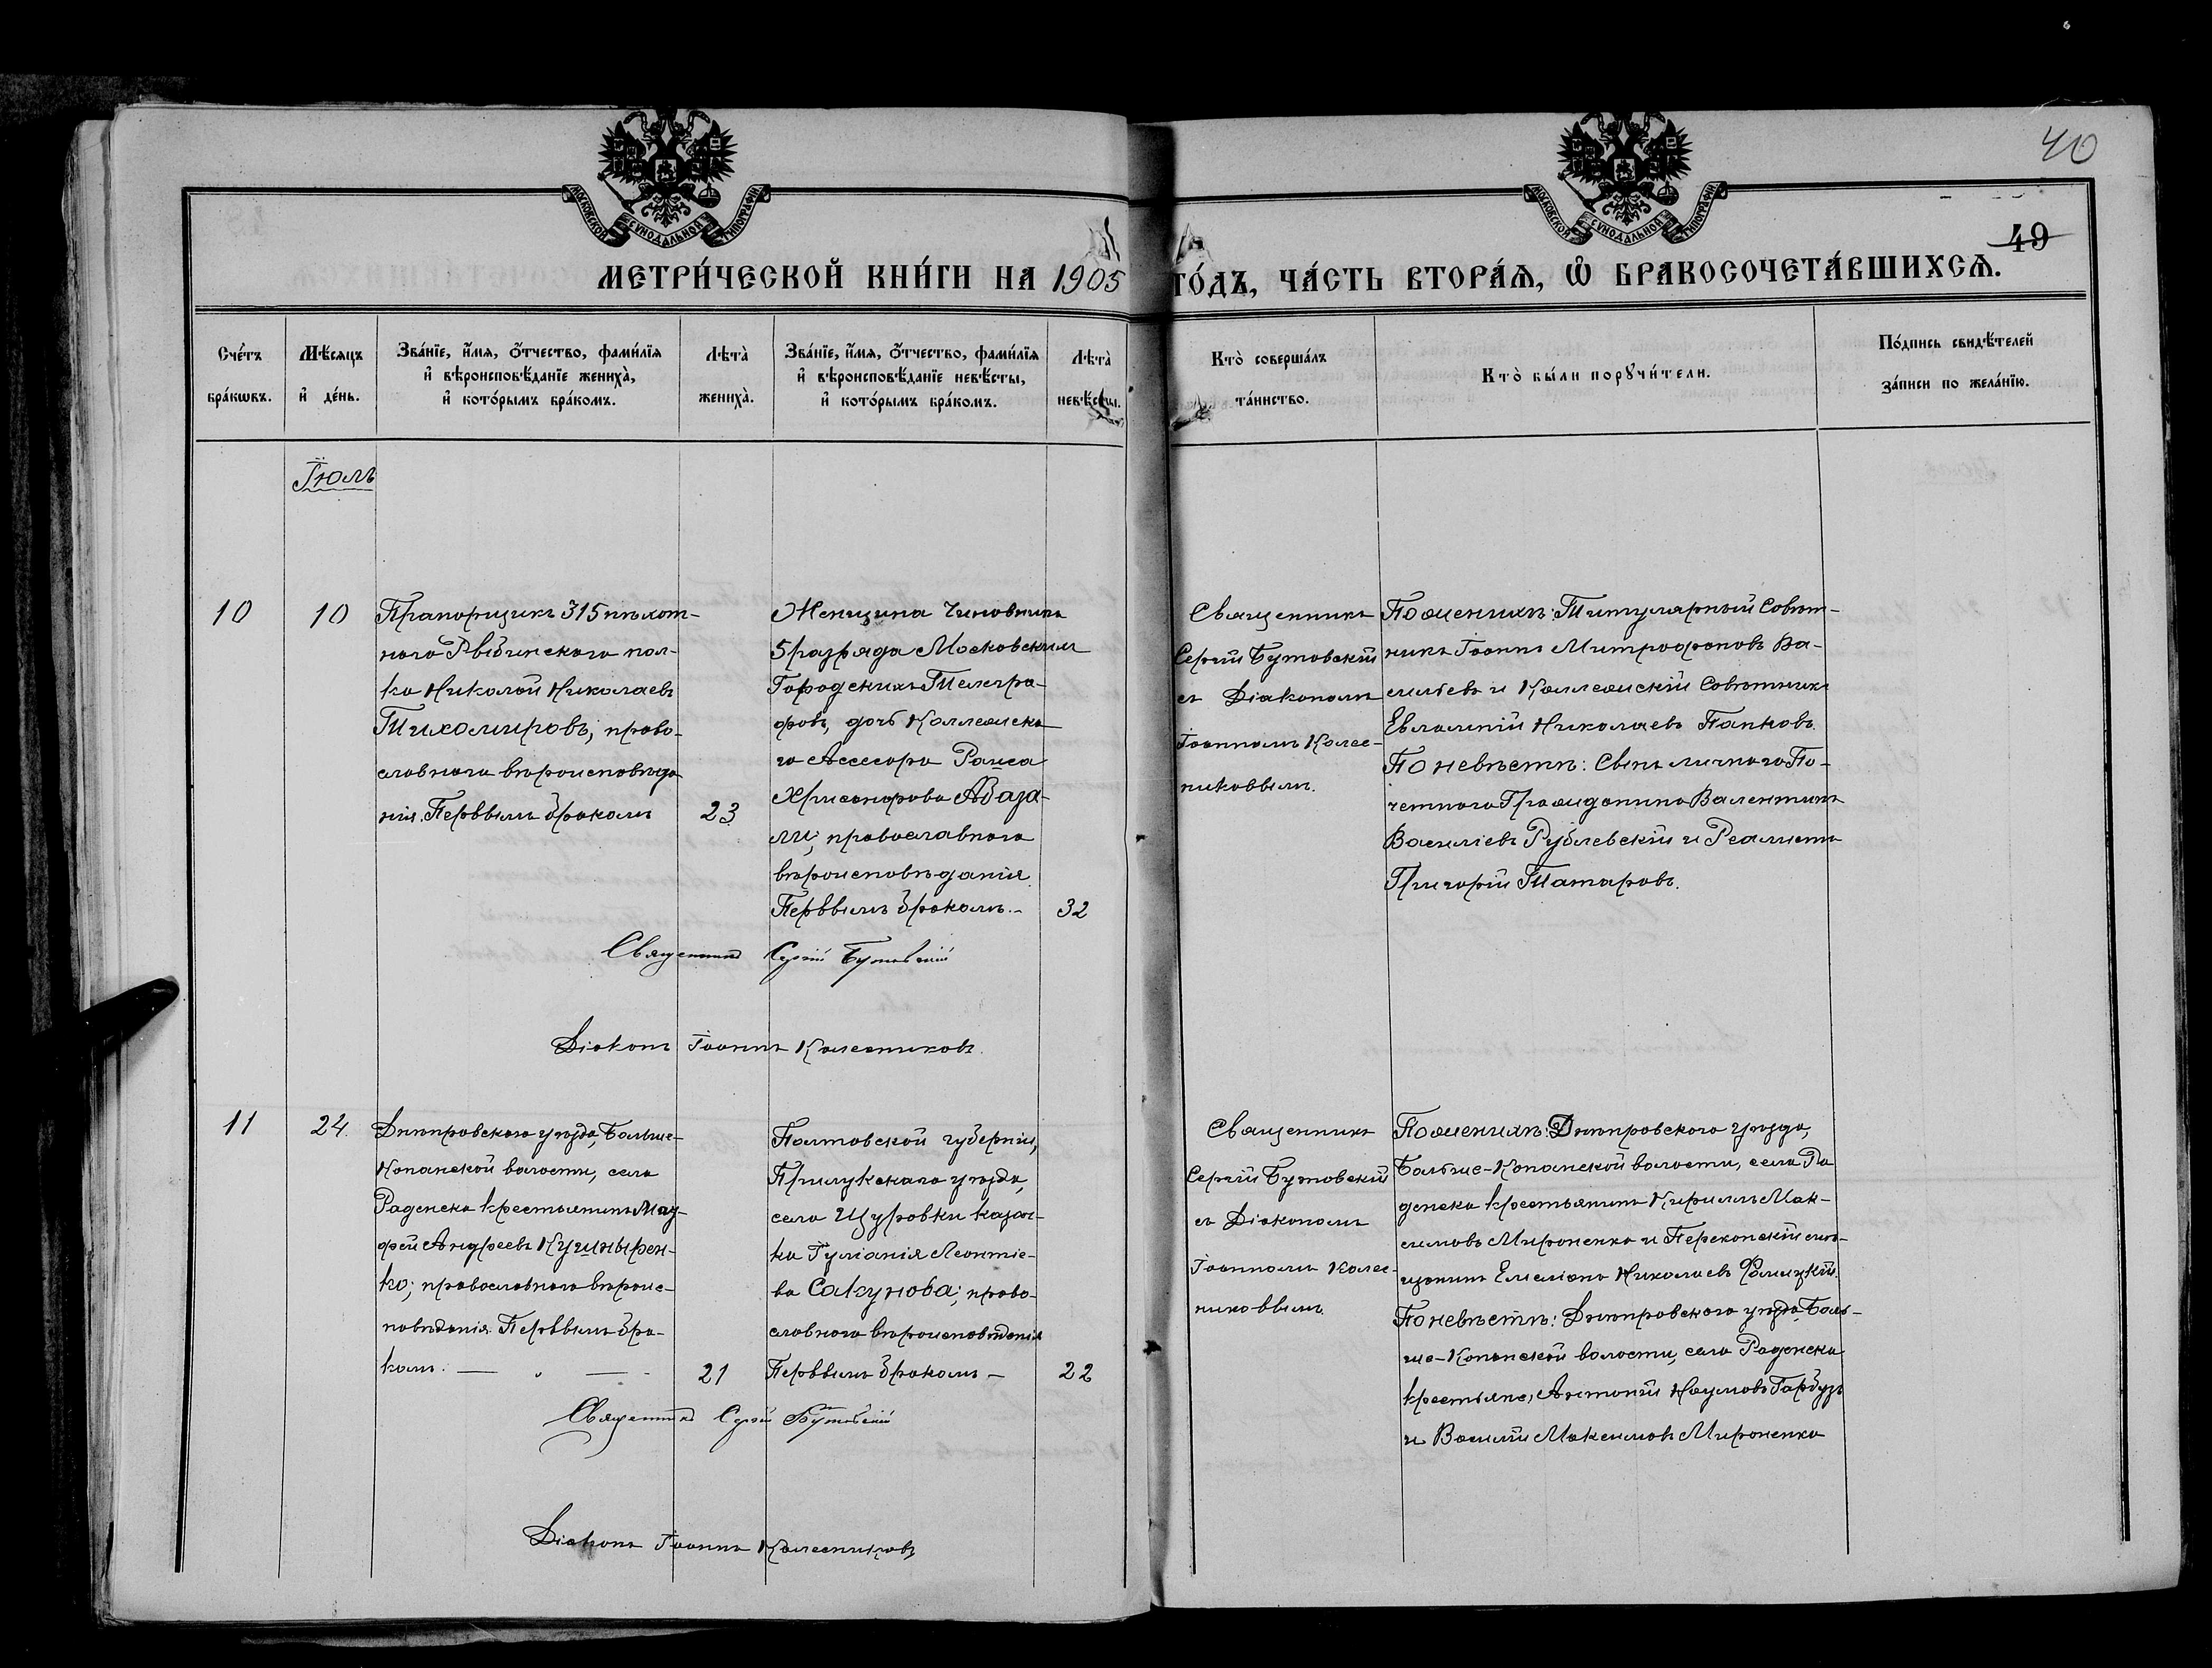 40
49
МОСКОВСКОЙ СѴНОДАЛЬНОЙ ТИПОГРАФІИ
МОСКОВСКОЙ СѴНОДАЛЬНОЙ ТИПОГРАФІИ
МЕТРИ́ЧЕСКОЙ КНИ́ГИ НА 1905 ГО́ДЪ, ЧА́СТЬ ВТОРА́Ѧ, Ѽ БРАКОСОЧЕТА́ВШИХСѦ.
Сче́тъ
бра́кѡвъ.
Мѣ́сяцъ
и҆ де́нь.
Зва́нїе, и҆́мя, ѻ҆́тчество, фами́лїя
и҆ вѣроисповѣ́данїе жениха̀,
и҆ кото́рымъ бра́комъ.
Лѣта̀
жениха̀.
Зва́нїе, и҆́мя, ѻ҆́тчество, фами́лїя
и҆ вѣроисповѣ́данїе невѣ́сты,
и҆ кото́рымъ бра́комъ.
Лѣта̀
невѣ́сты.
Кто̀ соверша́лъ
та́инство.
Кто̀ бы́ли порꙋчи́тели.
По́дпись свидѣ́телей
за́писи по жела́нїю.
Іюль
10
10
Прапорщикъ 315 пѣхот-
наго
пол-
ка Николай Николаевъ
Тихомировъ; право-
славнаго вѣроисповѣда
нія. Первымъ бракомъ
23
Женщина Чиновникъ
5 разряда Московскихъ
Городскихъ Телегра-
фовъ, дочь Коллежска
го Ассесора Раиса
Хрисанфова Абаза-
ли; православнаго
вѣроисповѣданія.
Первымъ бракомъ. –
32
Священникъ
Сергій Бутовскій
съ Діакономъ
Іоанномъ Колес-
никовымъ.
По женихѣ: Титулярный Совѣт-
никъ Іоаннъ Митрофановъ Ва-
сильевъ и Коллежскій Совѣтникъ
Евлампій Николаевъ Папковъ.
По невѣстѣ: Сынъ личнаго По-
четнаго Гражданина Валентинъ
Василіевъ Рублевскій и Реалистъ
Григорій Татаровъ.
Священникъ Сергій Бутовскій
Діаконъ Іоаннъ Колесниковъ.
11
24.
Днѣпровскаго уѣзда, Больше-
Копанской волости, села
Раденска крестьянинъ
фей Андреевъ Кушнырен-
ко; православнаго вѣроис-
повѣданія. Первымъ бра-
комъ. — „ —
21
Полтавской губерніи,
Прилукскаго уѣзда,
села Щуровки казач-
ка Іуліанія Леонтіе-
ва Сакунова; право-
славнаго вѣроисповѣданія
Первымъ бракомъ –
22
Священникъ
Сергій Бутовскій
съ Діакономъ
Іоанномъ Колес-
никовымъ.
По женихѣ: Днѣпровскаго уѣзда,
Больше-Копанской волости, села Ра
денска крестьянинъ Кириллъ Мак-
симовъ Мироненко и Перекопскій мѣ-
щанинъ Емеліанъ Николаевъ
По невѣстѣ: Днѣпровскаго уѣзда, Боль-
ше-Копанской волости, села Раденска
крестьяне, Антоній Наумовъ Гарбузъ
и Василій Максимовъ Мироненко
Священникъ Сергій Бутовскій
Діаконъ Іоаннъ Колесниковъ